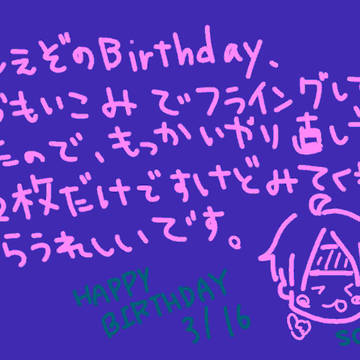 えぞのBirthday、
おもいこみでフライングして
たので、もっかいやり直して
2枚だけですけどみてくれ
らうれしいです。
HAPPY
BIRTHDAY
3/16